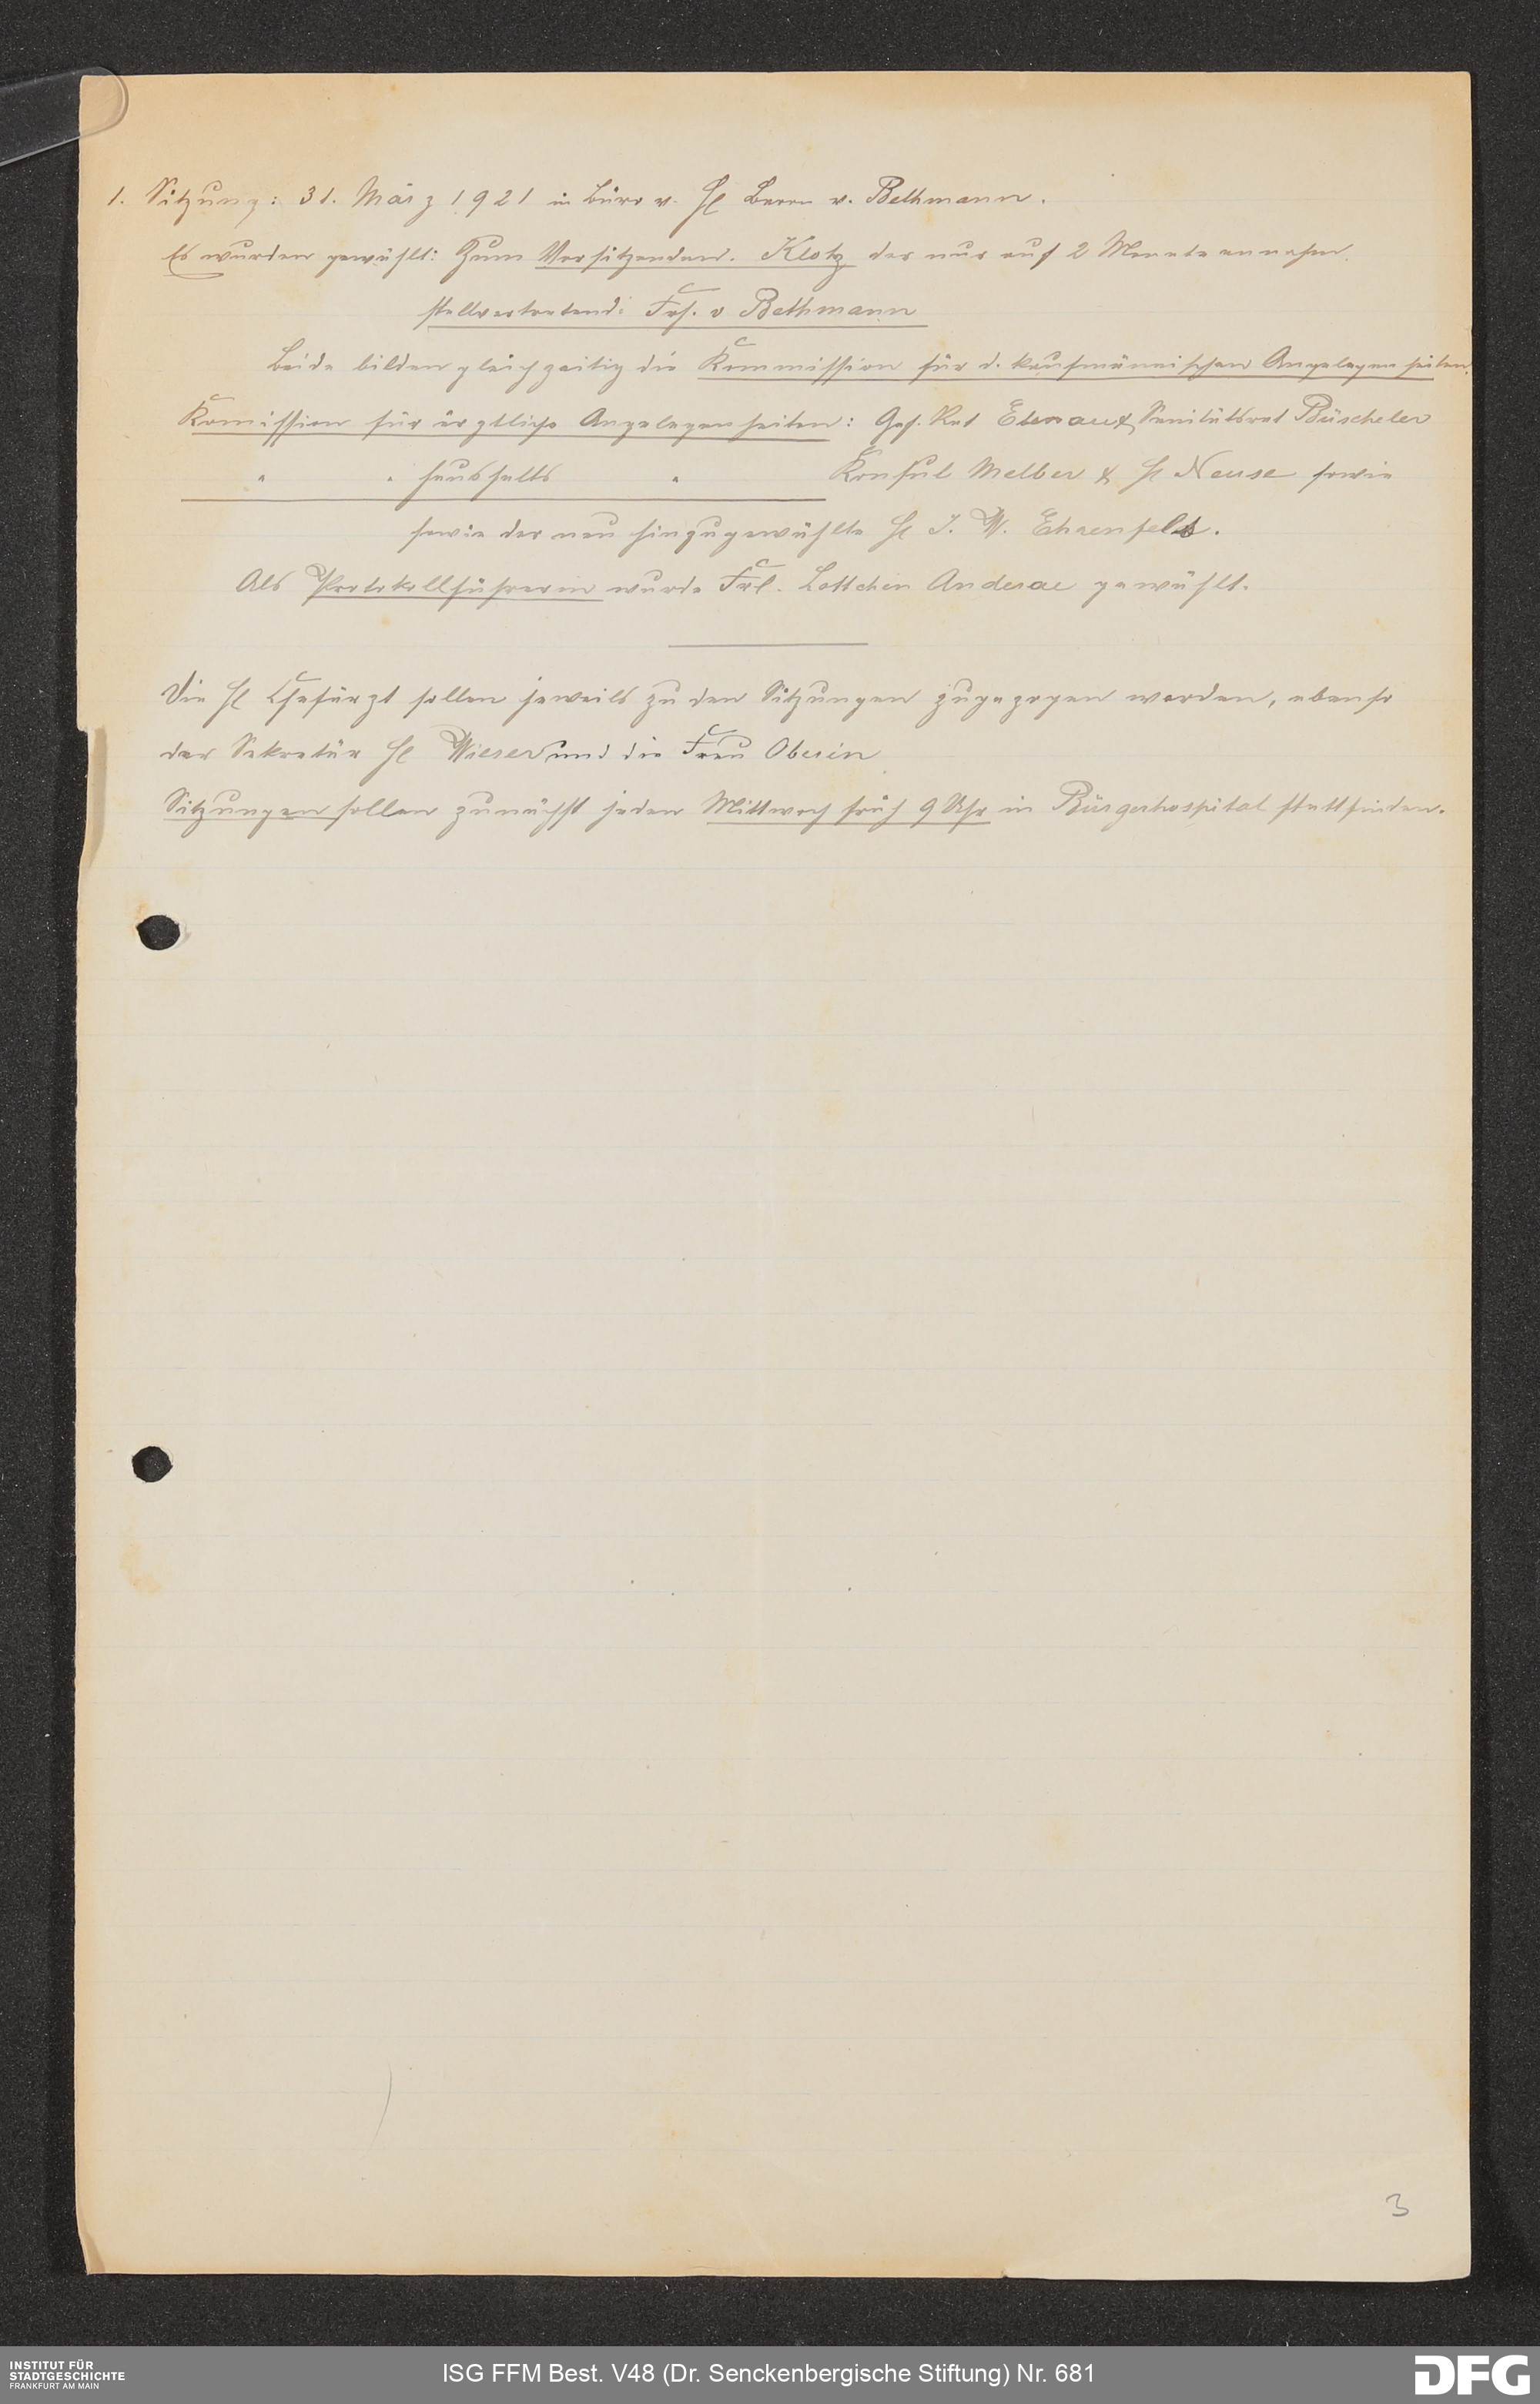 1. Sitzung: 31. März 1921 in Büro v. H Baron v. Bethmann.
Es wurden gewählt: Zum Vorsitzenden. Klotz der nur auf 2 Monate annahm.
stellvertretend: Frh. v Bethmann
Beide bilden gleichzeitig die Kommission für d. kaufmännischen Angelegenheiten.
Komission für ärztliche Angelegenheiten: Geh. Rat Ebenau & Sanitätsrat Büscheler
" " Haushalts " Konsul Melber & H Neuse sowie
sowie der neu hinzugewählte H J. W. Ehrenfels.
Als Protokollführerin wurde Frl. Lottchen Andreae gewählt.
Die H Chefärzt sollen jeweils zu den Sitzungen zugezogen werden, ebenso
der Sekretär H Wieser und die Frau Oberin
Sitzungen sollen zunächst jeden Mittwoch früh 9 Uhr in Bürgerhospital stattfinden.
3
INSTITUT FÜR
STADTGESCHICHTE
FRANKFURT AM MAIN
ISG FFM Best. V48 (Dr. Senckenbergische Stiftung) Nr. 681
DFG